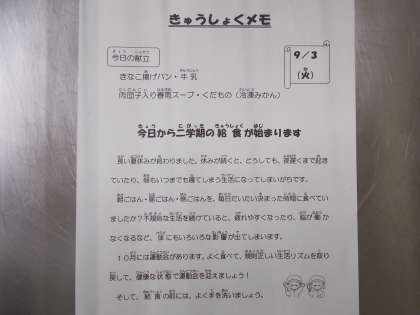 きゅうしょくメモ
今日の献立
9/3
(火)
きなこ揚げパン・牛乳
肉団子入り春雨スープ・くだもの(冷凍みかん)
今日から二学期の給食が始まります
長い夏休みが終わりました。休みが続くと、どうしても、夜遅くまで起き
ていたり、朝もいつまでも寝てしまう生活になってしまいがちです。
朝ごはん・昼ごはん・晩ごはんを、毎日だいたい決まった時間に食べてい
ましたか?不規則な生活を続けていると、疲れやすくなったり、脳が働か
なくなるなど、体にもいろいろな影響が出てしまいます。
10月には運動会があります。よく食べて、規則正しい生活リズムを取り
戻して、健康な状態で運動会を迎えましょう!
そして、給食の前には、よく手を洗いましょう。